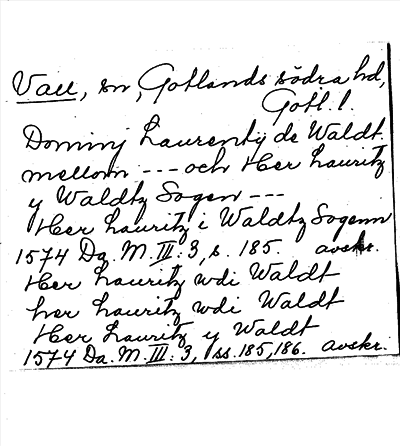 Vall, sn, Gotlands södra hd,
Gotl. l.
Dominj Laurentij de Waldt.
mellom --- och Her Lauritz
y Waldtz Sogen ---
Her Lauritz i Waldtz Sogenn
1574 Da. M. III: 3, s. 185. avskr.
Her Lauritz udi Waldt
her Lauritz udi Waldt
Her Lauritz y Waldt
1574 Da. M. III: 3, ss. 185, 186. avskr.